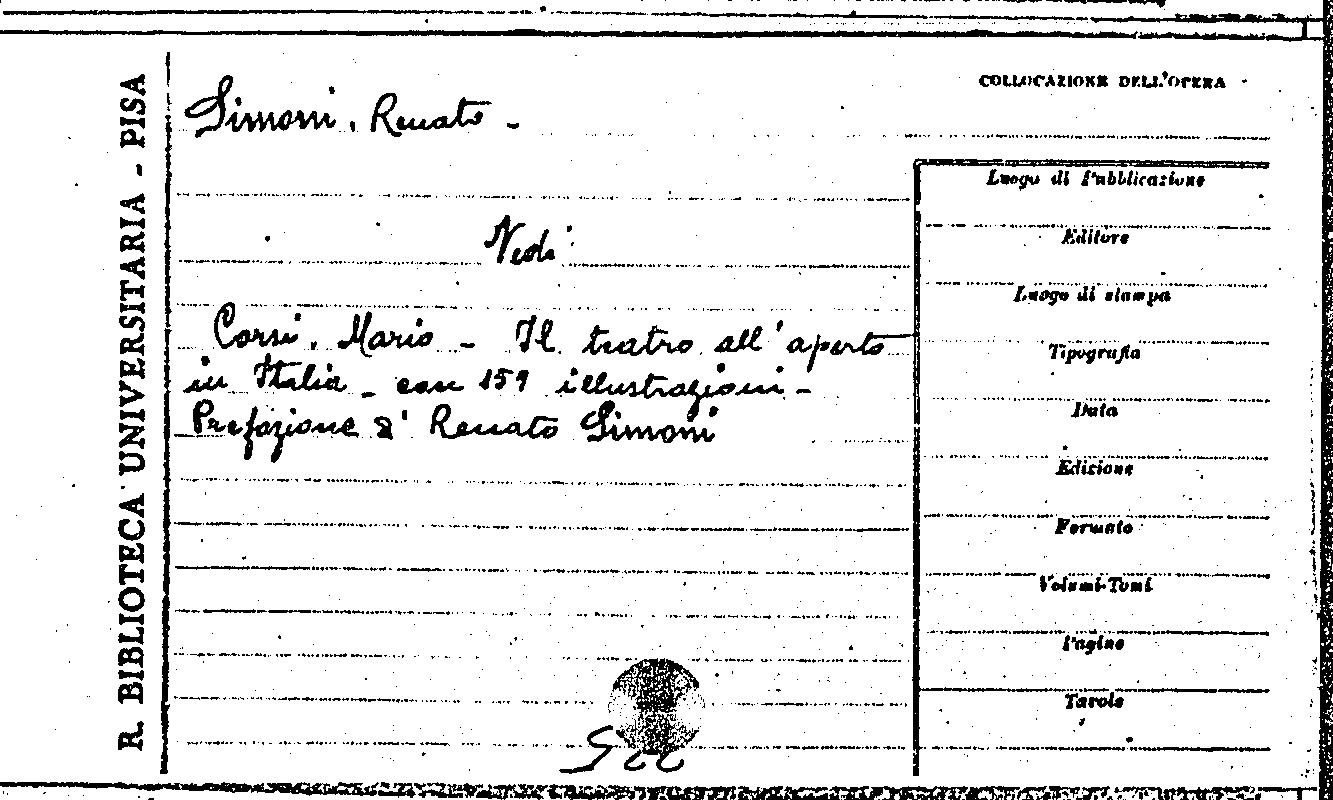 R. BIBLIOTECA UNIVERSITARIA - PISA
Simoni, Renato -
Vedi
Corsi, Mario - Il teatro all'aperto
in Italia - con 159 illustrazioni -
Prefazione di Renato Simoni
COLLOCAZIONE DELL'OPERA
Luogo di Pubblicazione
Editore
Luogo di stampa
Tipografia
Data
Edizione
Formato
Volumi-Tomi
Pagine
Tavole